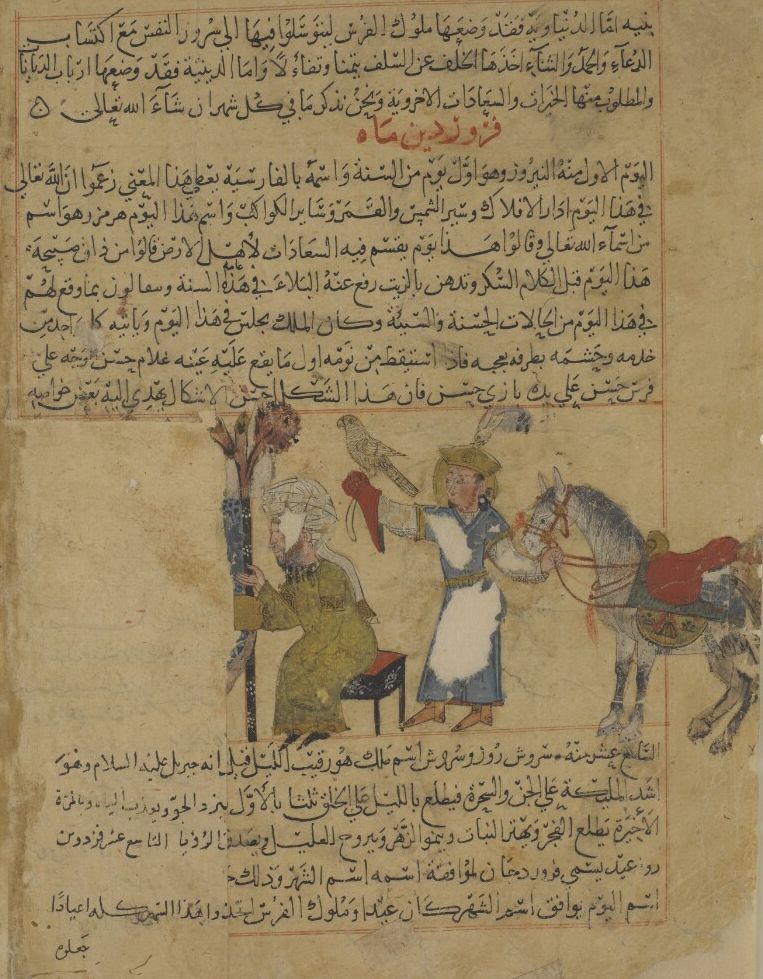 بنيه اما الدنياوية فقد وضعها ملوك الفرس ليتوسلوا فيها الى سرور النفس مع اكتساب
الدعاء والحمد والثناء اخذها الخلف عن السلف تيمنا وتفاءلا واما الدينية فقد وضعها ارباب الديانا
والمطلوب منها الخيرات والسعادات الاخروية ونحن نذكر ما في كل شهر ان شاء الله تعالى
فروردين ماه
اليوم الاول منه النيروز وهو اول يوم من السنة واسمه بالفارسية يعطي هذا المعنى زعموا ان الله تعالى
في هذا اليوم ادار الافلاك وسير الشمس والقمر وساير الكواكب واسم هذا اليوم هرمز وهو اسم
من اسماء الله تعالى وقالوا هذا يوم يقسم فيه السعادات لاهل الارض قالوا من ذاق صبيحة
هذا اليوم قبل الكلام السكر وتدهن بالزيت رفع عنه البلاء في عامة هذه السنة وسفالون بما وقع لهم
في هذا اليوم من الحالات الحسنة والسيئة وكان الملك يجلس في هذا اليوم وياتيه كل واحد من
خدمه وحشمه بطرفة فاذا استيقظ من نومه اول ما يقع عليه عينه غلام حسن الوجه على
فرس حسن على يده بازي حسن فان هذا الشكل احسن الاشكال يهدي اليه بعض خواصه
السابع عشر منه سروش روز وسروش اسم ملك هو رقيب الليل قيل انه جبريل عليه السلام وهو
اشد الملئكة على الجن والسحرة فيطلع بالليل على الخلق ثلثا بالاول يبرد الجو ويعذب المياه وبالمرة
الاخيرة يطلع الفجر ويهتز النبات وينمو الزهر ويروح العليل ويصدق الرؤيا التاسع عشر فروردين
روز عيد يسمى فروردجان لموافقة اسمه اسم الشهر وذلك
اسم اليوم يوافق اسم الشهر كان عيدا وملوك الفرس اتخذوا هذا الشهر كله اعيادا